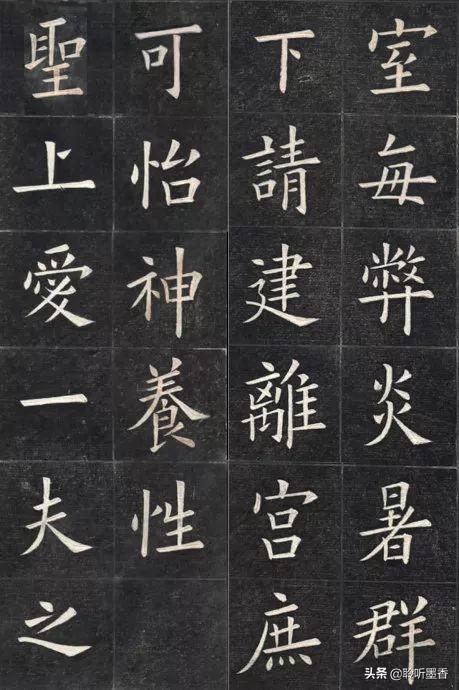 室每弊炎暑群
下請建離宮庶
可怡神養性
聖上愛一夫之
头条 @聆听墨香